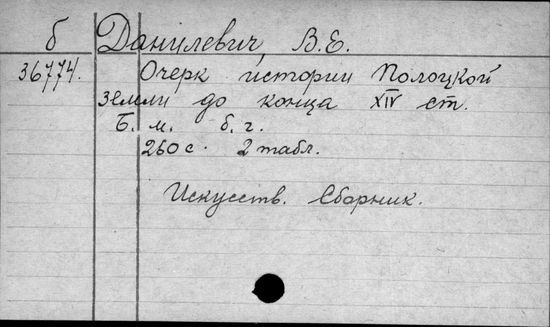 б Данилевич, В.Е.
36774. Очерк истории Полоцкой
земли до конца XIV ст.
Б. м. б. г.
260 с. 2 табл.
Искусств. Сборник.